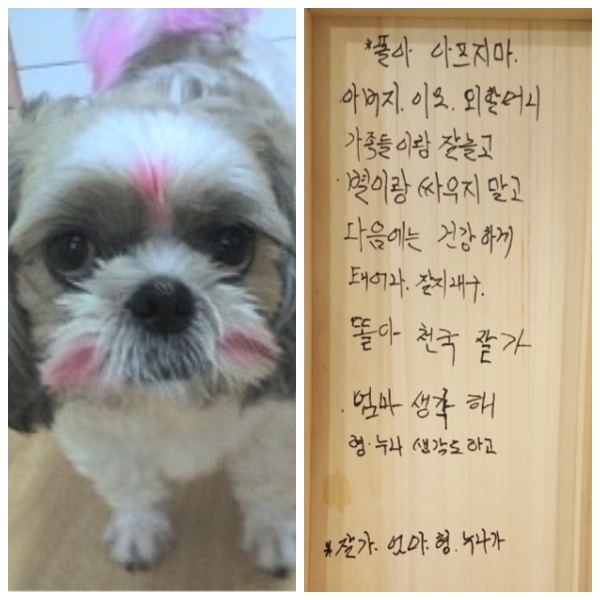 *똘아 아프지마.
아버지. 이모. 외할머니
가족들이랑 잘놀고
별이랑 싸우지 말고
다음에는 건강하게
태어나. 잘지내구.
똘아 천국 잘가
엄마 생각해
형·누나 생각도하고
*잘가. 엄마. 형. 누나가